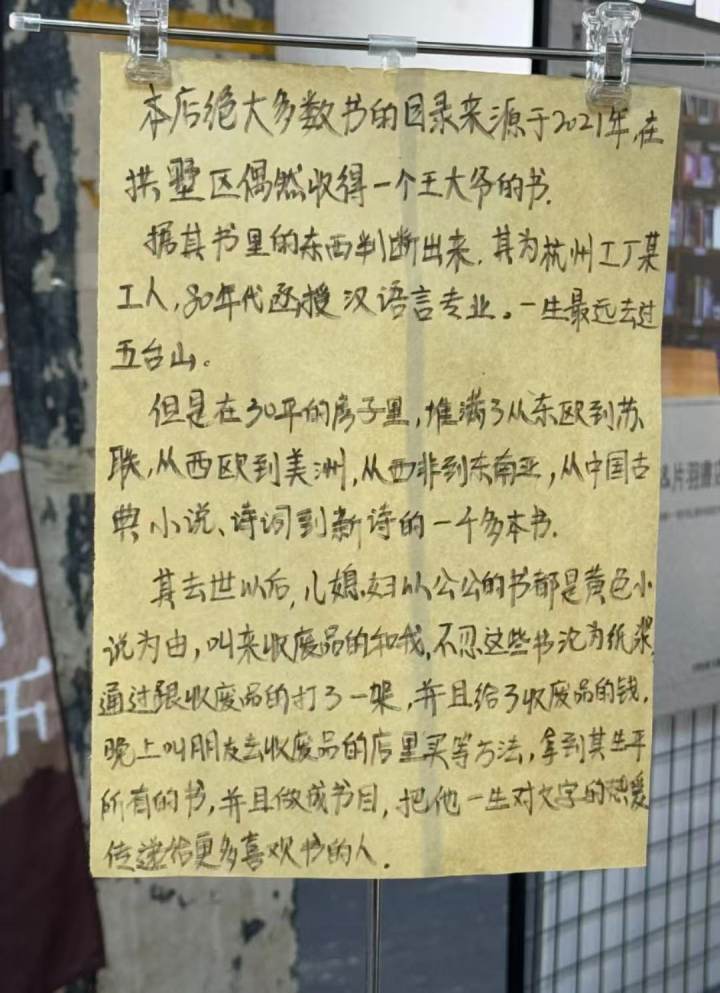 本店绝大多数书的目录来源于2021年,在
拱墅区偶然收得一个王大爷的书.
据其书里的东西判断出来,其为杭州工厂某
工人,80年代函授汉语言专业。一生最远去过
五台山。
但是在30平的房子里,堆满了从东欧到苏
联,从西欧到美洲,从西非到东南亚,从中国古
典小说、诗词到新诗的一千多本书.
其去世以后,儿媳妇以公公的书都是黄色小
说为由,叫来收废品的和我,不忍这些书沦为纸浆,
通过跟收废品的打了一架,并且给了收废品的钱,
晚上叫朋友去收废品的店里买等方法,拿到其生平
所有的书,并且做成书目,把他一生对文字的热爱
传递给更多喜欢书的人.
&片羽書店